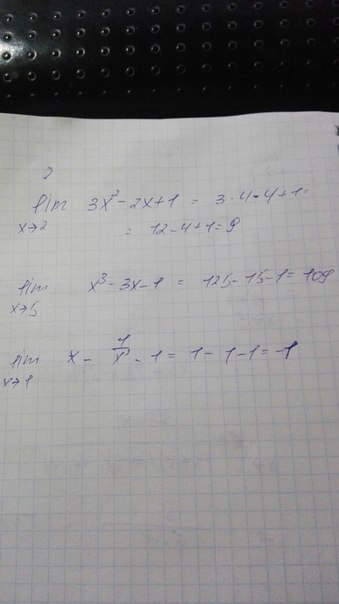 lim 3x² - 2x + 1 = 3·4-4+1=
x→2
= 12-4+1=9
lim x³ - 3x - 1 = 125-15-1=109
x→5
lim x - 1/x - 1 = 1-1-1=-1
x→1